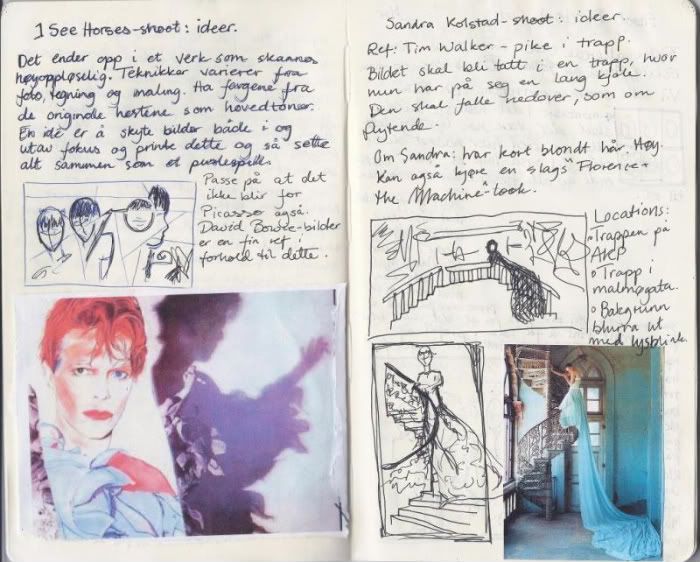 I See Horses-shoot: ideer.
Det ender opp i et verk som skannes
høyoppløselig. Teknikker varierer fra
foto, tegning og maling. Ha fargene fra
de originale hestene som hovedtoner.
En idé er å skyte bilder både i og
utav fokus og printe dette og så sette
alt sammen som et puslespill.
Passe på at det
ikke blir for
Picasso også.
David Bowie-bilder
er en fin ref i
forhold til dette.
Sandra Kolstad-shoot: ideer.
Ref: Tim Walker - pike i trapp.
Bildet skal bli tatt i en trapp, hvor
hun har på seg en lang kjole.
Den skal falle nedover, som om
flytende.
Om Sandra: har kort blondt hår. Høy.
Kan også kjøre en slags "Florence +
the Machine"-look.
Locations:
Trappen på
Trapp i
malmøgata.
Bakgrunn
blurra ut
med lysblink.